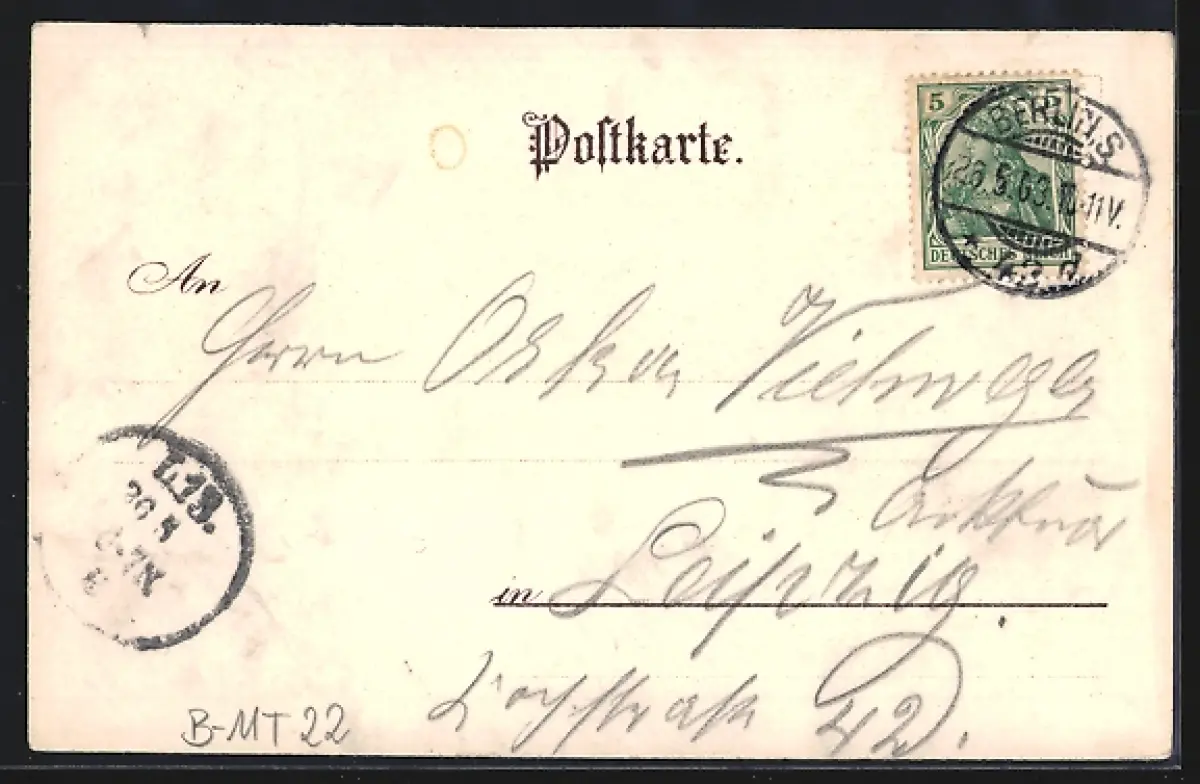 Postkarte.
5 5
BERLIN, S.
26.5.03.10-11V.
DEUTSCHES REICH
An
Herrn Oskar Viehweger
L13.
26 5
6-7N
in Leipzig.
42.
B-MT 22